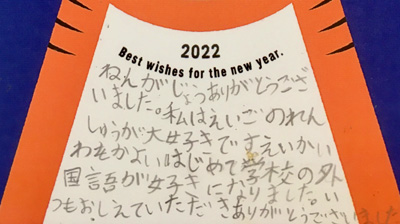 2022
Best wishes for the new year.
ねんがじょうありがとうござ
いました。私はえいごのれん
しゅうが大好きですえいかい
わもかよいはじめて学校の外
国語が好きになりました。い
つもおしえていただきありがとうございました